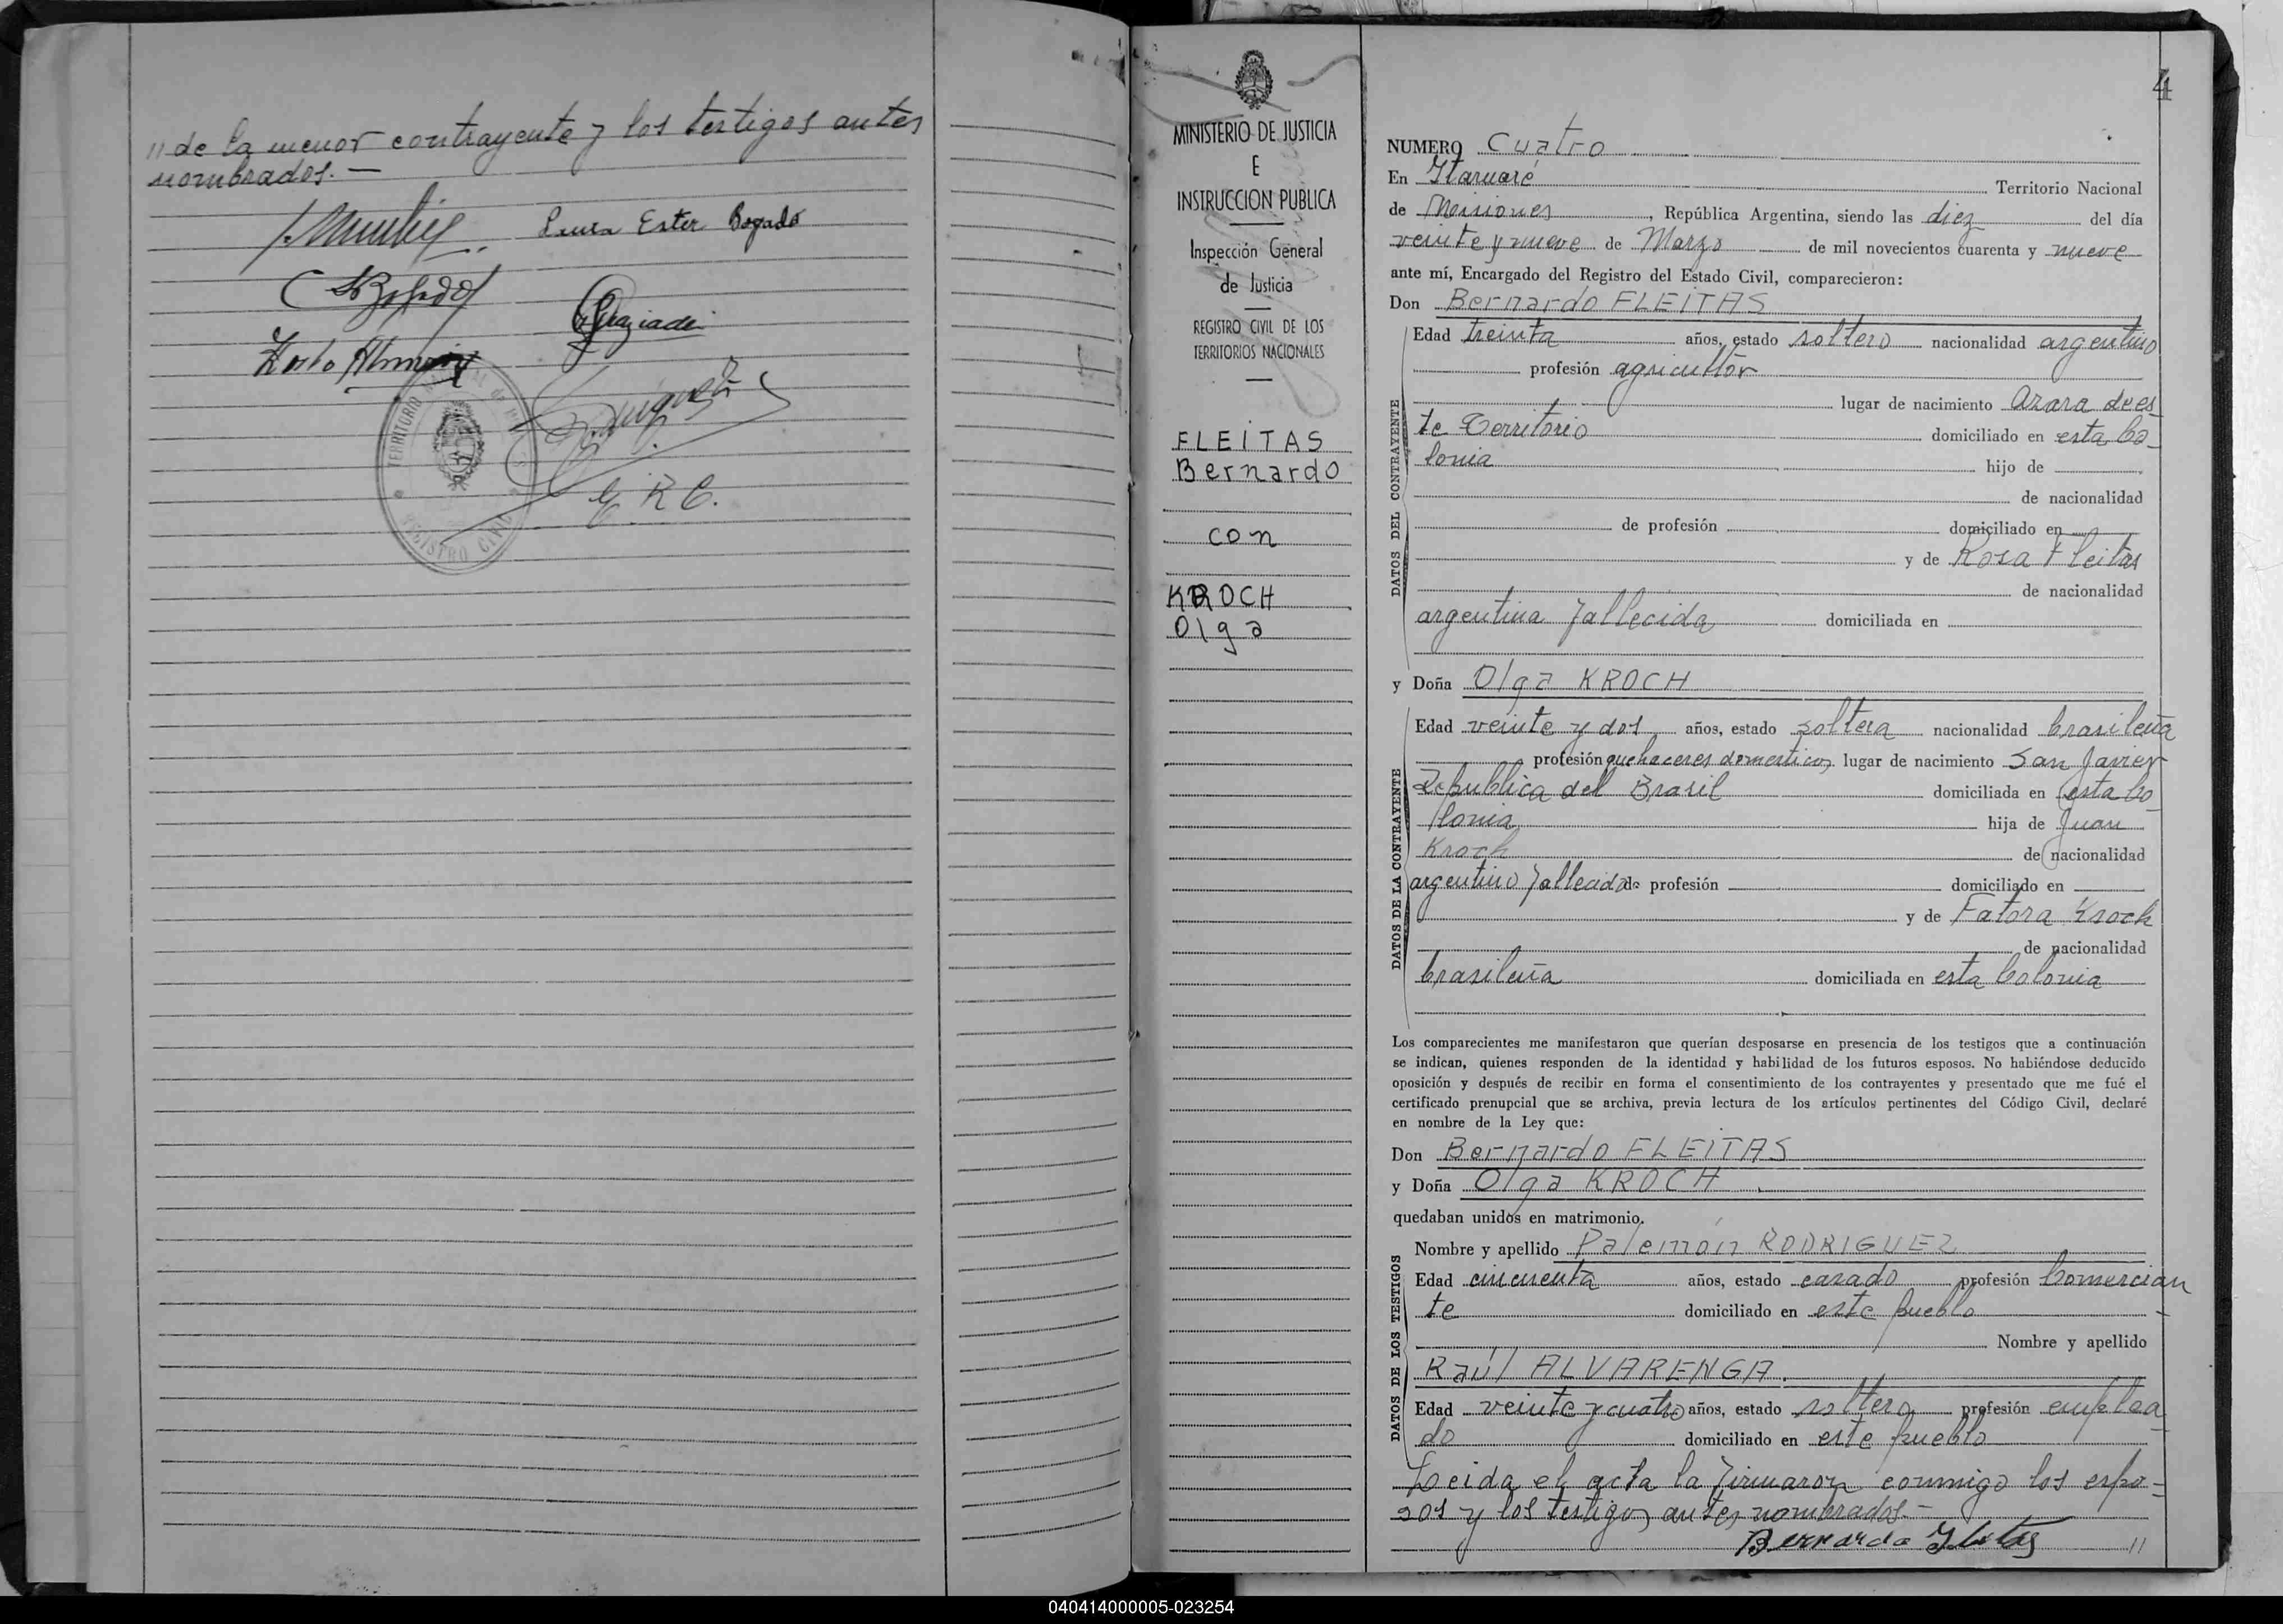 " de la menor contrayente y los testigos antes
nombrados. —
Ester Bogado
TERRITORIO
REGISTRO CIVIL
E. R. C.
MINISTERIO DE JUSTICIA
E
INSTRUCCION PUBLICA
Inspección General
de Justicia
REGISTRO CIVIL DE LOS
TERRITORIOS NACIONALES
FLEITAS
Bernardo
con
KROCH
Olga
4
NUMERO Cuatro
En Itacuaré Territorio Nacional
de Misiones, República Argentina, siendo las diez del día
veinte y nueve de Marzo de mil novecientos cuarenta y nueve
ante mí, Encargado del Registro del Estado Civil, comparecieron:
Don Bernardo FLEITAS
DATOS DEL CONTRAYENTE
Edad treinta años, estado soltero nacionalidad argentino
profesión agricultor
lugar de nacimiento Azara de es-
te Territorio domiciliado en esta Co-
lonia hijo de
de nacionalidad
de profesión domiciliado en
y de Rosa Fleitas
de nacionalidad
argentina fallecida domiciliada en
y Doña Olga KROCH
DATOS DE LA CONTRAYENTE
Edad veinte y dos años, estado soltera nacionalidad brasileña
profesión quehaceres domesticos lugar de nacimiento San Javier
Republica del Brasil domiciliada en esta Co-
lonia hija de Juan
Kroch de nacionalidad
argentino fallecido de profesión domiciliado en
y de Fatora Kroch
de nacionalidad
brasileña domiciliada en esta Colonia
Los comparecientes me manifestaron que querían desposarse en presencia de los testigos que a continuación
se indican, quienes responden de la identidad y habilidad de los futuros esposos. No habiéndose deducido
oposición y después de recibir en forma el consentimiento de los contrayentes y presentado que me fué el
certificado prenupcial que se archiva, previa lectura de los artículos pertinentes del Código Civil, declaré
en nombre de la Ley que:
Don Bernardo FLEITAS
y Doña Olga KROCH
quedaban unidos en matrimonio.
DATOS DE LOS TESTIGOS
Nombre y apellido Palemón RODRIGUEZ
Edad cincuenta años, estado casado profesión Comercian-
te domiciliado en este pueblo
Nombre y apellido
Raúl ALVARENGA.
Edad veinte y cuatro años, estado soltero profesión emplea-
do domiciliado en este pueblo
Leida el acta la firmaron conmigo los espo=
sos y los testigos antes nombrados. —
Bernardo Fleitas "
040414000005-023254